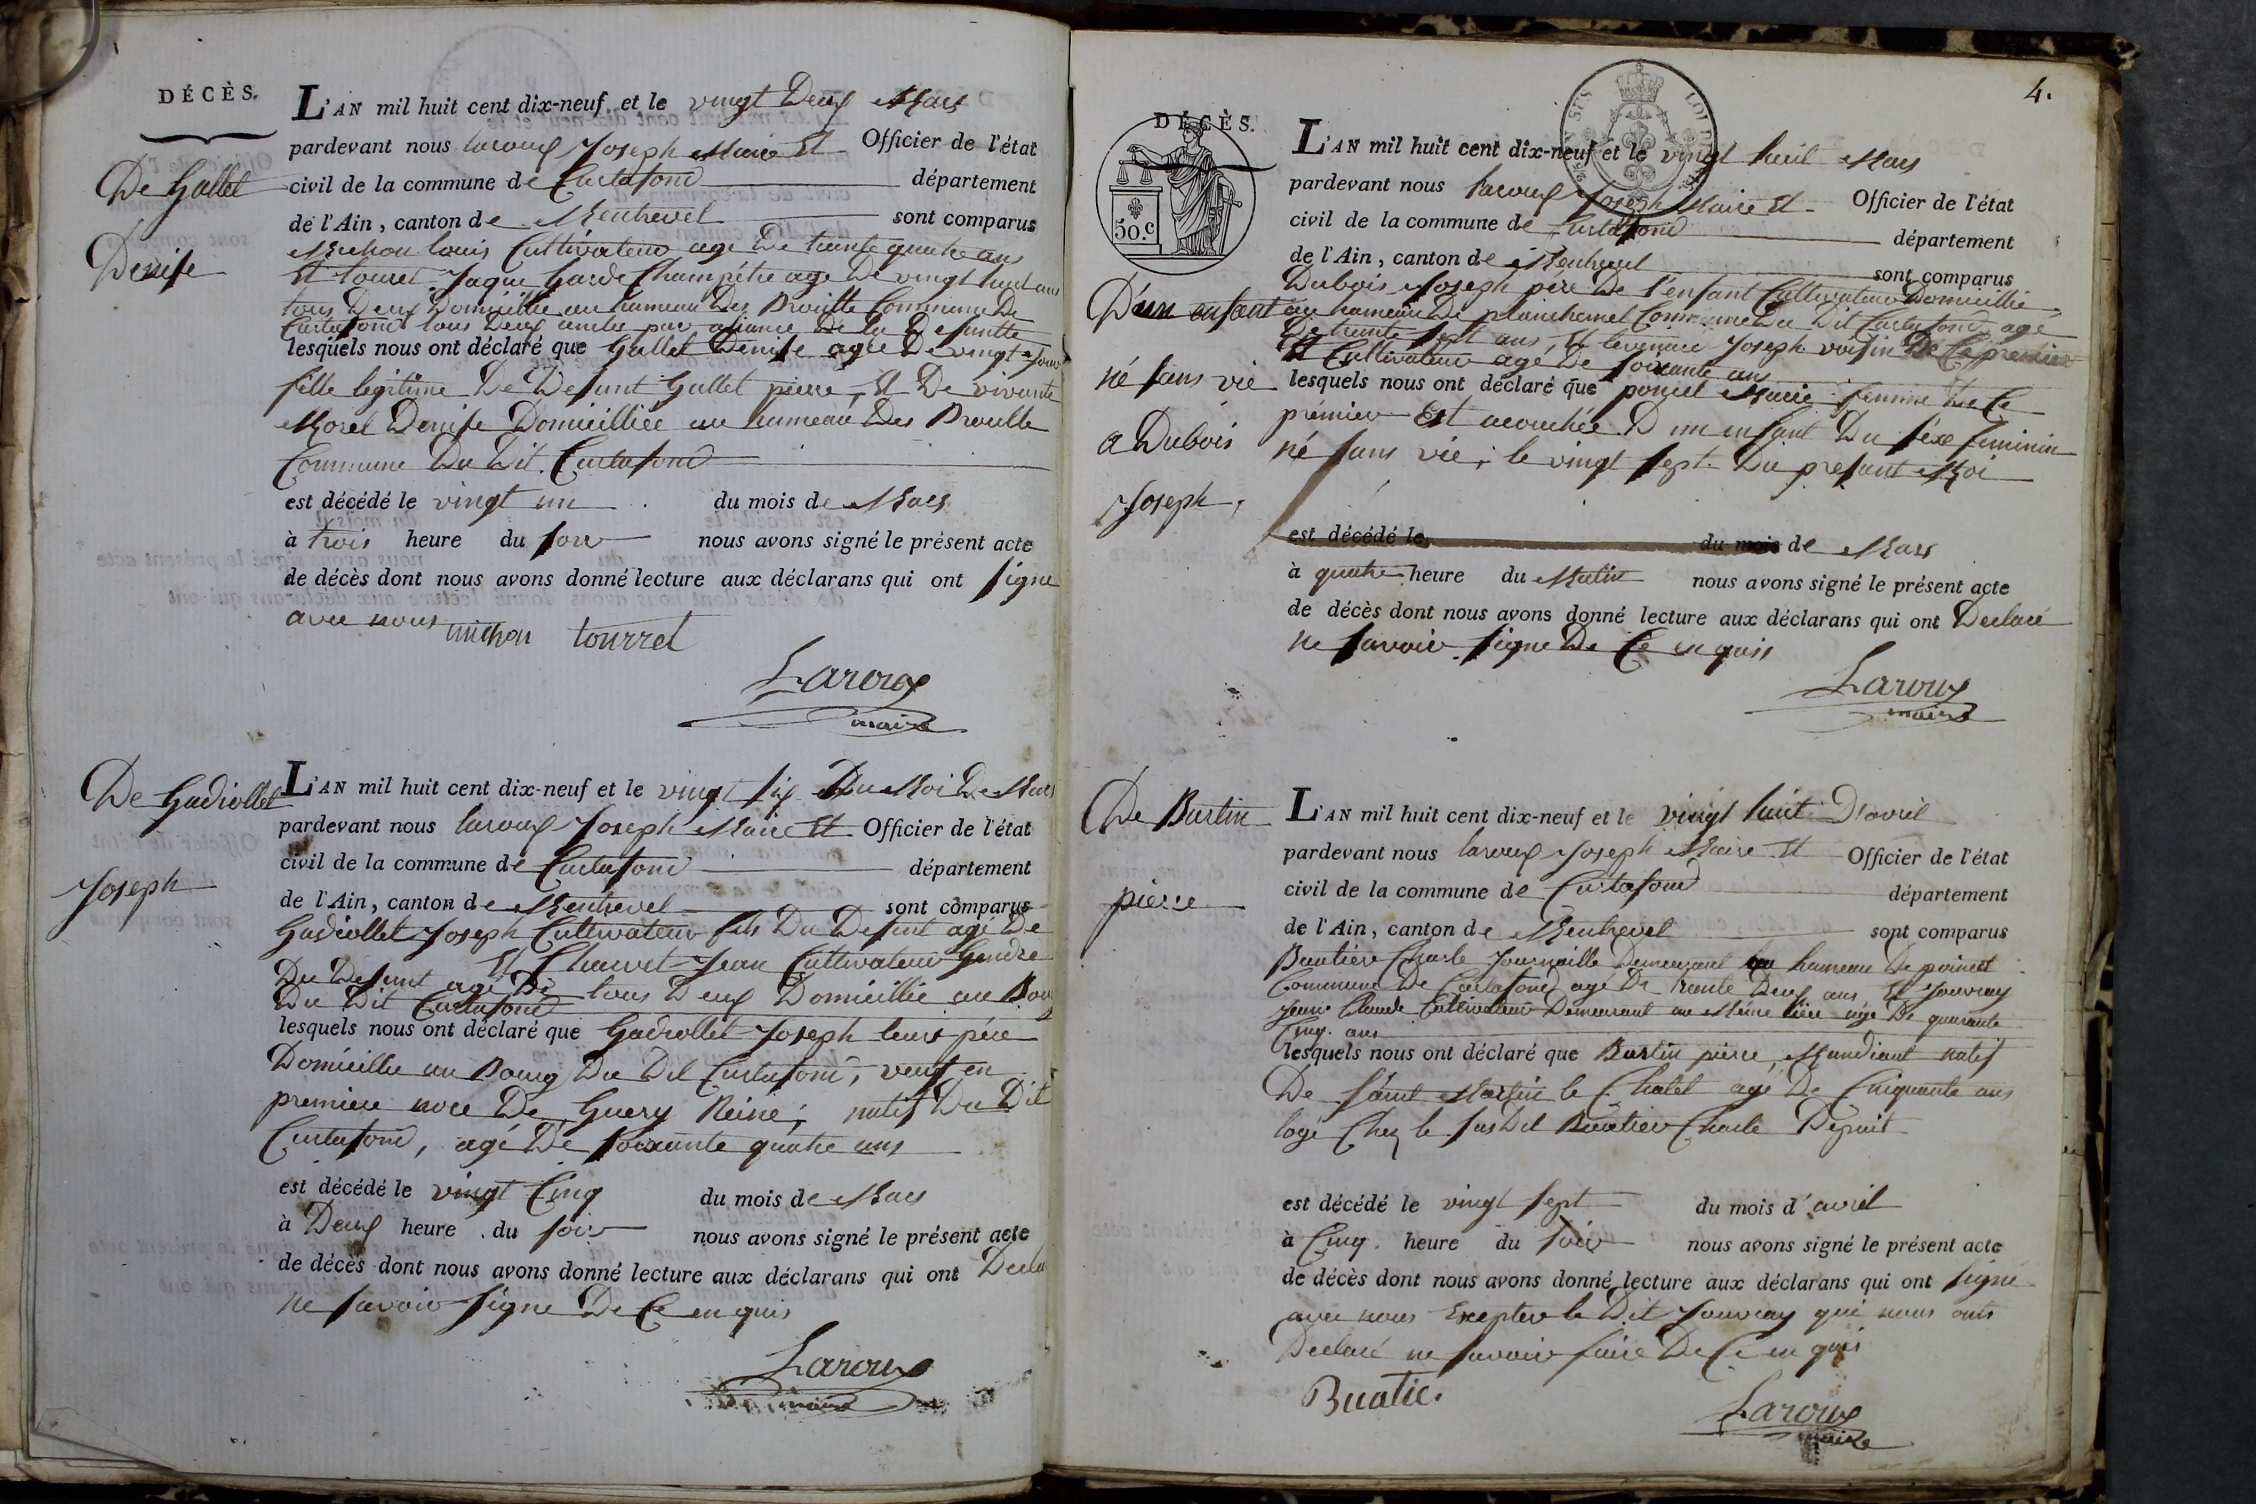 DÉCÈS.
De Gallet
Denise
L'AN mil huit cent dix-neuf et le vingt Deux Mars
pardevant nous laroux Joseph Maire Et Officier de l'état
civil de la commune de Curtafond département
de l'Ain, canton de Montrevel sont comparus
Michon louis Cultivateur age De trante quatre ans
Et touret Jaque Garde Champêtre age De vingt huit ans
tous Deux Domicillié au hameau Des Broulle Commune De
Curtafond tous Deux oncles par aliance De la Defuntte
lesquels nous ont déclaré que Gallet Denise agée De vingt jour
fille legitime De Defunt Gallet pierre, Et De vivante
Morel Denise Domicilliée au hameau Des Broulle
Commune Du Dit Curtafond
est décédé le vingt un du mois de Mars
à trois heure du soir nous avons signé le présent acte
de décès dont nous avons donné lecture aux déclarans qui ont signe
avec nous michon tourret
Laroux
maire
De Gadiollet
Joseph
L'AN mil huit cent dix-neuf et le vingt six Du Moi De Mars
pardevant nous laroux Joseph Maire Et Officier de l'état
civil de la commune de Curtafond département
de l'Ain, canton de Montrevel sont comparus
Gadiollet Joseph Cultivateur fils Du Defunt agé De
Et Chauvet Jean Cultivateur Gendre
Du Defunt agé De tous Deux Domicillié au Bourg
Du Dit Curtafond
lesquels nous ont déclaré que Gadiollet Joseph leur pére
Domicillié au Bourg Du Dit Curtafond, veuf en
premiere noce De Guery Reine; natif Du Dit
Curtafond, agé De soixante quatre ans
est décédé le vingt Cinq du mois de Mars
à Deux heure du soir nous avons signé le présent acte
de décès dont nous avons donné lecture aux déclarans qui ont Decla
ne savoir signe De Ce enquis
Laroux
maire
4.
DÉCÈS.
50.c
D'un enfant
né sans vie
a Dubois
Joseph,
L'AN mil huit cent dix-neuf et le vingt huit Mars
pardevant nous laroux Joseph Maire Et Officier de l'état
civil de la commune de Curtafond département
de l'Ain, canton de Montrevel sont comparus
Dubois Joseph pére De l'enfant Cultivateur Domicillié
au hameau De planchemel Commune Du Dit Curtafond agé
De trante sept ans, Et Joseph voisin De Ce premier
Et Cultivateur age De soixante ans
lesquels nous ont déclaré que poncet Marie femme De Ce
prémier Est acouchée D'un enfant Du séxe feminin
né sans vie; le vingt sept Du present Moi
est décédé le du mois de Mars
à quatre heure du Matin nous avons signé le présent acte
de décès dont nous avons donné lecture aux déclarans qui ont Declaré
ne savoir signe De Ce enquis
Laroux
maire
De Burtin
pierre
L'AN mil huit cent dix-neuf et le vingt huit D'avril
pardevant nous laroux Joseph Maire Et Officier de l'état
civil de la commune de Curtafond département
de l'Ain, canton de Montrevel sont comparus
Buatier Charle Journaille Demeurant au hameau De
Commune De Curtafond agé De trante Deux ans, Et Jouvray
Jean Claude Cultivateur Demeurant au Même lieu agé De quarante
Cinq ans
lesquels nous ont déclaré que Burtin pierre, Mandiant natif
De Saint Martin le Chatel agé De Cinquante ans
logé Chez le susDit Buatier Charle Depuit
est décédé le vingt sept du mois d'avril
à Cinq heure du soir nous avons signé le présent acte
de décès dont nous avons donné lecture aux déclarans qui ont signé
avec nous Excepter le Dit Jouvray qui nous onts
Declaré ne savoir faire De Ce enquis
Buatie.
Laroux
maire